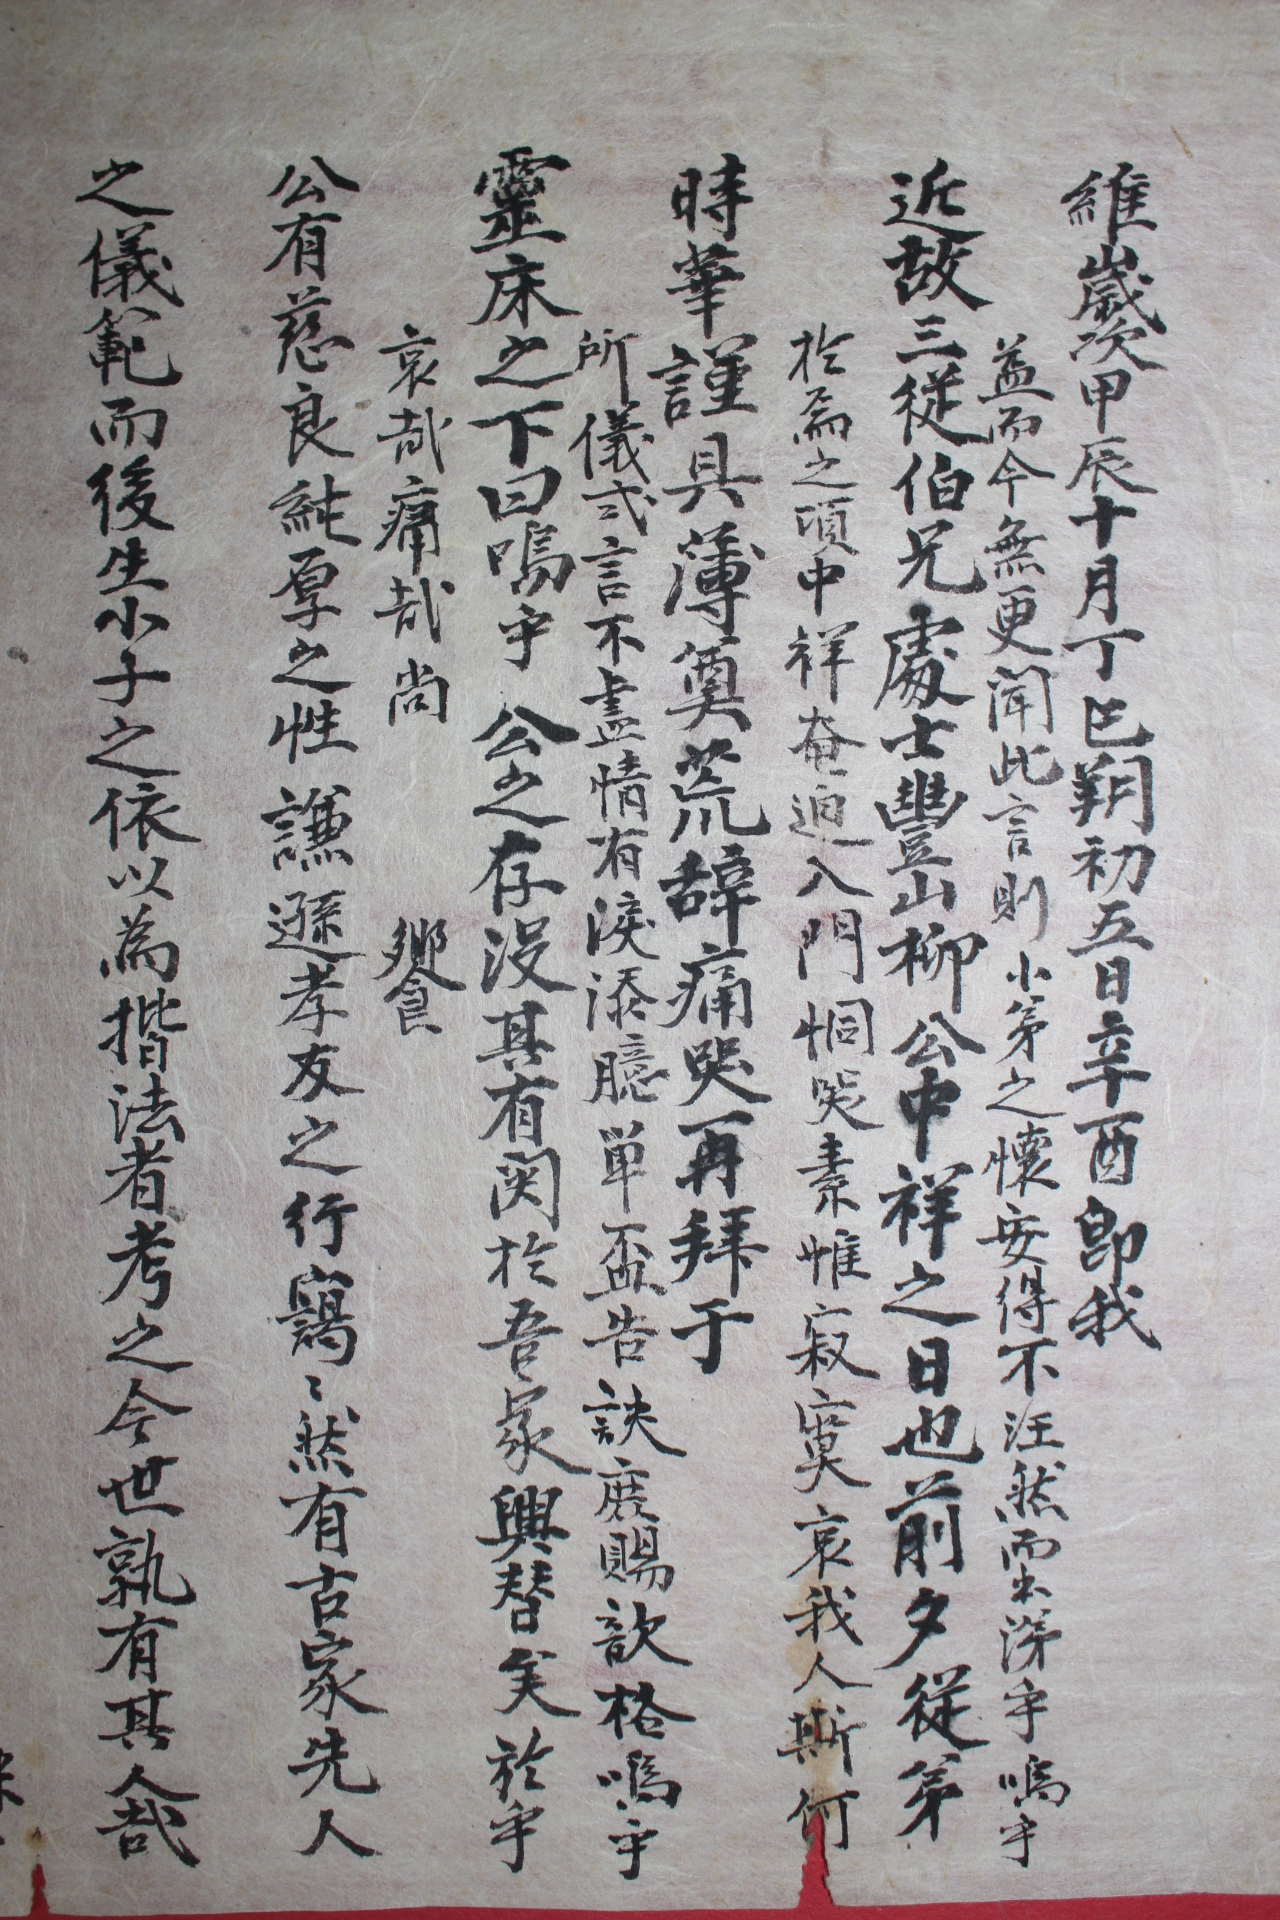 維歲次甲辰十月丁巳朔初五日辛酉卽我
益而今無更聞此言則小弟之懷安得不汪然而出涕乎嗚乎
近故三從伯兄處士豐山柳公中祥之日也前夕從弟
於焉之頃中祥奄迫入門恫哭素帷寂寞哀我人斯何
時華謹具薄奠荒辞痛哭再拜于
所儀式言不盡情有淚添臆単盃告訣庶賜歆格嗚乎
靈床之下曰嗚乎 公之存没其有関於吾家興替矣於乎
哀哉痛哉尚 饗
公有慈良純厚之性謙遜孝友之行藹〻然有古家先人
之儀範而後生小子之依以為揩法者考之今世孰有其人哉